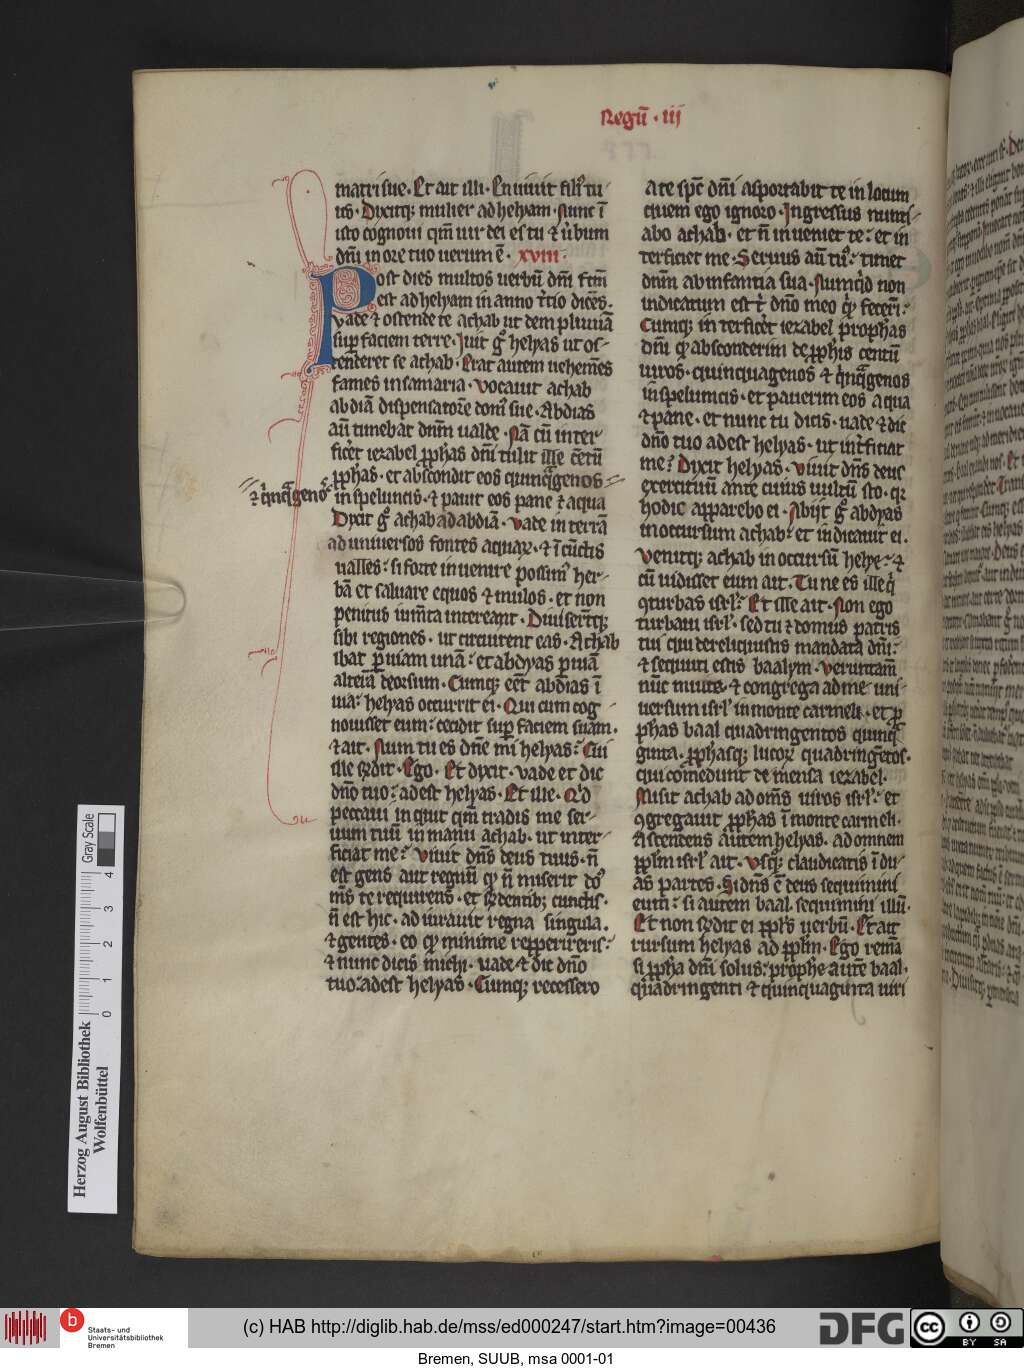 Regū · iij
matri sue · Et ait illi · En uiuit fili⁹ tu
us · Dixitqꝫ mulier ad helyam · Nunc ī
isto cognoui qm̄ uir dei es tu ⁊ ūbum
dn̄i in ore tuo uerum ē · xviii ·
Post dies multos uerbū dn̄i fc̄m
est ad helyam in anno t̄tio dicēs ·
vade ⁊ ostende te achab ut dem pluuiā
sup faciem terre · Iuit gͦ helyas ut os-
tenderet se achab · Erat autem uehemēs
fames in samaria · vocauit achab
abdiā dispensatorē dom⁹ sue · Abdias
aū timebat dn̄m ualde · Nā cū inter-
ficēt iezabel ꝓphas dn̄i tulit ille cētū
ꝓphas · et abscondit eos quinqᷓgenos
⁊ qͥnqᷓgenos
in speluncis · ⁊ pauit eos pane ⁊ aqua
Dixit gͦ achab ad abdiā · vade in terrā
ad uniuersos fontes aquaꝝ · ⁊ ī cūctis
ualles · si forte inuenire possim⁹ her-
bā et saluare equos ⁊ mulos · et non
penitus iumēta intereant · Diuiserūtqꝫ
sibi regiones · ut circuirent eas · Achab
ibat ꝑ uiam unā · et abdyas ꝑ uiā
alterā deorsum · Cumqꝫ eēt abdias ī
uia · helyas occurrit ei · Qui cum cog
nouisset eum · cecidit suꝑ faciem suam ·
⁊ ait · Num tu es dn̄e mi helyas · Cui
ille rn̄dit · Ego · Et dixit · vade et dic
dn̄o tuo · adest helyas · Et ille · Qͥd
peccaui inquit qm̄ tradis me ser-
uum tuū in manu achab · ut inter-
ficiat me · viuit dn̄s deus tuus · n̄
est gens aut regnū qͦ n̄ miserit do⁹
m̄s te requirens · et rn̄dentibꝫ cunctis ·
n̄ est hic · adiurauit regna singula ·
⁊ gentes · eo qͦ minime reꝑꝑireris
⁊ nunc dicis michi · vade ⁊ dic dn̄o
tuo · adest helyas · Cumqꝫ recessero
a te spc̄ dn̄i asportabit te in locum
quem ego ignoro · Ingressus nunti-
abo achab · et n̄ inueniet te · et in
terficiet me · Seruus aū tu⁹ · timet
dn̄m ab infantia sua · Numqͥd non
indicatum est t̄ dn̄o meo qͥ fecerī ·
Cumqꝫ interficēt iezabel prophas
dn̄i qͦ absconderim de ꝓphis centū
uiros · quinquagenos ⁊ qͥnqᷓgenos
in speluncis · et pauerim eos aqua
⁊ pane · et nunc tu dicis · uade ⁊ dic
dn̄o tuo adest helyas · ut int̄ficiat
me · Dixit helyas · viuit dn̄s deus
exercituū ante cuius uultū sto · qꝛ
hodie apparebo ei · Abijt gͦ abdyas
in occursum achab · et indicauit ei ·
venitqꝫ achab in occursū helye · ⁊
cū uidisset eum ait · Tu ne es ille qͥ
ꝯturbas isrl̄ · Et ille ait · Non ego
turbaui isrl̄ · sed tu ⁊ domus patris
tui qui dereliquistis mandata dn̄i ·
⁊ sequuti estis baalym · veruntam̄
nūc mitte · ⁊ congrega ad me uni-
uersum isrl̄ in monte carmeli · et ꝓ
phas baal quadringentos quinqᷓ
ginta · ꝓphasqꝫ lucoꝝ quadringētos ·
qui comedunt de mensa iezabel ·
Misit achab ad om̄s uiros isrl̄ · et
ꝯgregauit ꝓphas ī monte carmeli ·
Ascendens autem helyas · ad omnem
ppl̄m isrl̄ ait · vsqꝫ claudicatis ī du-
as partes · Si dn̄s ē deus sequimini
eum · si autem baal sequimini illū ·
Et non rn̄dit ei ppl̄s uerbū · Et ait
rursum helyas ad ppl̄m · Ego remāsi
si ꝓpha dn̄i solus · prophe autē baal ·
quadringenti ⁊ quinquaginta uiri
Herzog August Bibliothek
Wolfenbüttel
Gray Scale
0 1 2 3 4
b
Staats- und
Universitätsbibliothek
Bremen
(c) HAB http://diglib.hab.de/mss/ed000247/start.htm?image=00436
DFG
cc BY SA
Bremen, SUUB, msa 0001-01